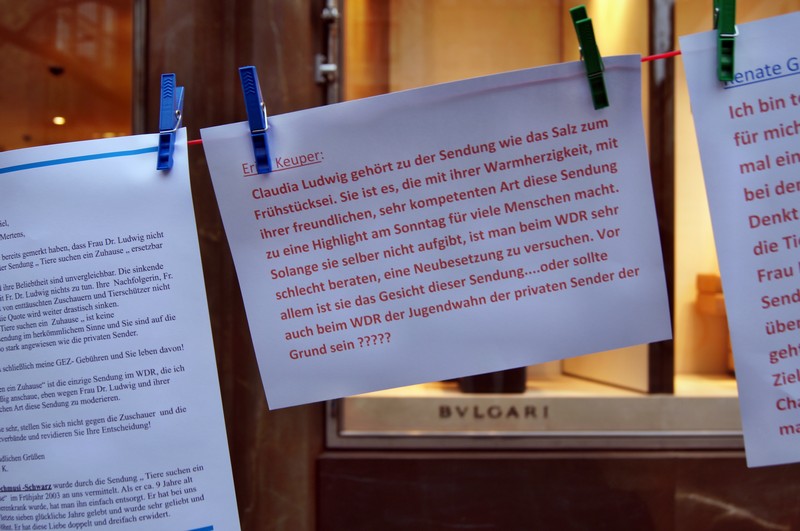 iel,
Mertens,
bereits gemerkt haben, dass Frau Dr. Ludwig nicht
er Sendung „ Tiere suchen ein Zuhause „ ersetzbar
d ihre Beliebtheit sind unvergleichbar. Die sinkende
it Fr. Dr. Ludwig nichts zu tun. Ihre Nachfolgerin, Fr.
von enttäuschten Zuschauern und Tierschützer nicht
ie Quote wird weiter drastisch sinken.
Tiere suchen ein Zuhause „ ist keine
sendung im herkömmlichem Sinne und Sie sind auf die
o stark angewiesen wie die privaten Sender.
schließlich meine GEZ- Gebühren und Sie leben davon!
en ein Zuhause“ ist die einzige Sendung im WDR, die ich
ßig anschaue, eben wegen Frau Dr. Ludwig und ihrer
chen Art diese Sendung zu moderieren.
e sehr, stellen Sie sich nicht gegen die Zuschauer und die
verbünde und revidieren Sie Ihre Entscheidung!
ndlichen Grüßen
K.
chmusi-Schwarz wurde durch die Sendung „ Tiere suchen ein
se“ im Frühjahr 2003 an uns vermittelt. Als er ca. 9 Jahre alt
renkrank wurde, hat man ihn einfach entsorgt. Er hat bei uns
letzte sieben glückliche Jahre gelebt und wurde sehr geliebt und
öhnt. Er hat diese Liebe doppelt und dreifach erwidert.
Keuper:
Claudia Ludwig gehört zu der Sendung wie das Salz zum
Frühstücksei. Sie ist es, die mit ihrer Warmherzigkeit, mit
ihrer freundlichen, sehr kompetenten Art diese Sendung
zu eine Highlight am Sonntag für viele Menschen macht.
Solange sie selber nicht aufgibt, ist man beim WDR sehr
schlecht beraten, eine Neubesetzung zu versuchen. Vor
allem ist sie das Gesicht dieser Sendung....oder sollte
auch beim WDR der Jugendwahn der privaten Sender der
Grund sein ?????
BVLGARI
Renate G
Ich bin t
für mich
mal ein
bei den
Denkt
die Tie
Frau
Send
über
geh
Ziel
Cha
ma